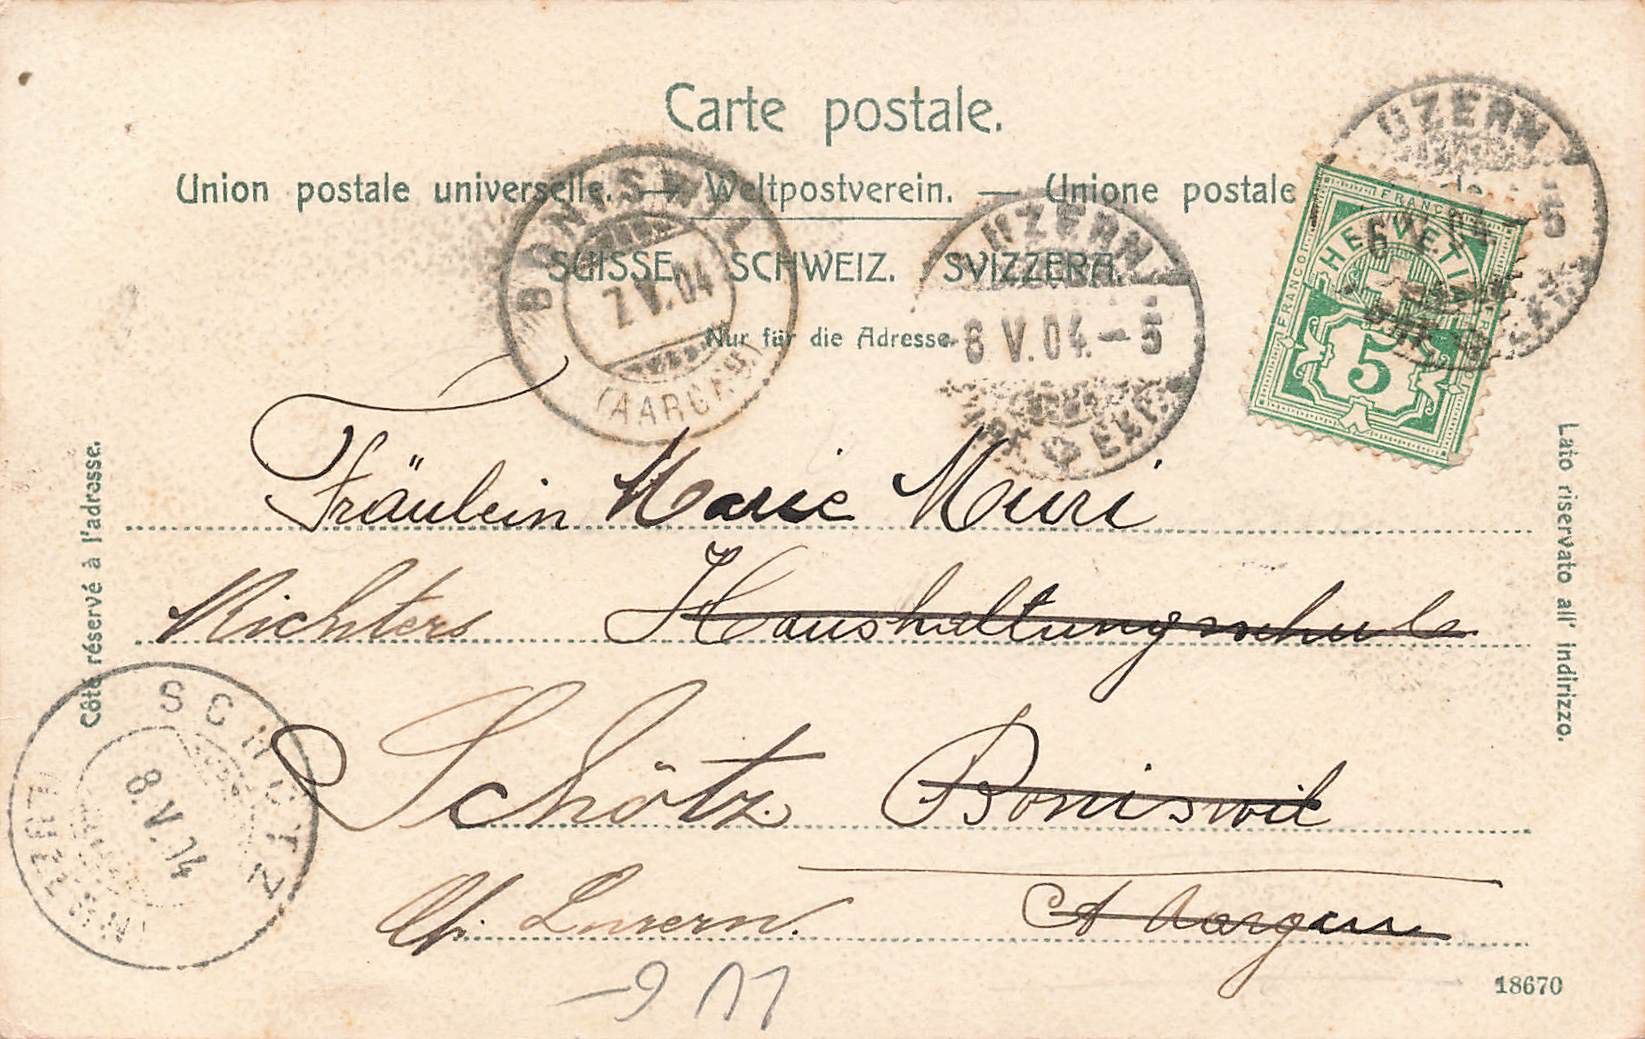 Carte postale.
Union postale universelle. — Weltpostverein. — Unione postale
SUISSE. SCHWEIZ. SVIZZERA.
Nur für die Adresse.
BONISWIL
7.V.04
(AARGAU)
LUZERN
6 V.04.–5
LUZERN
6 V.04.–5
FRANCO
HELVETIA
FRANCO
5
Côté réservé à l'adresse.
Lato riservato all' indirizzo.
Fräulein Marie Muri
Richters Haushaltungsschule
Schötz Boniswil
Ct. Luzern. Ct Aargau
SCHÖTZ
8.V.04
(LUZERN)
18670